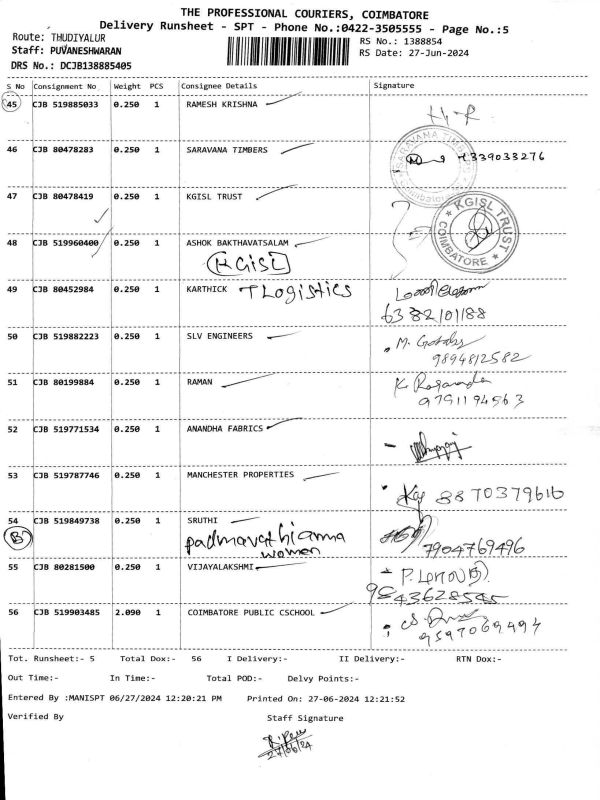 THE PROFESSIONAL COURIERS, COIMBATORE
Delivery Runsheet - SPT - Phone No.:0422-3505555 - Page No.:5
Route: THUDIYALUR
Staff: PUVANESHWARAN
DRS No.: DCJB138885405
RS No.: 1388854
RS Date: 27-Jun-2024
S No Consignment No Weight PCS Consignee Details Signature
45 CJB 519885033 0.250 1 RAMESH KRISHNA
46 CJB 80478283 0.250 1 SARAVANA TIMBERS 9339033276
SARAVANA TIMBERS
Coimbatore
47 CJB 80478419 0.250 1 KGISL TRUST
KGISL TRUST
COIMBATORE
48 CJB 519960400 0.250 1 ASHOK BAKTHAVATSALAM
KGISL
49 CJB 80452984 0.250 1 KARTHICK TLogistics
6382101188
50 CJB 519882223 0.250 1 SLV ENGINEERS
9894812582
51 CJB 80199884 0.250 1 RAMAN
9791194563
52 CJB 519771534 0.250 1 ANANDHA FABRICS
53 CJB 519787746 0.250 1 MANCHESTER PROPERTIES
8870379616
54 CJB 519849738 0.250 1 SRUTHI
B padmavathiamma
women
7904769496
55 CJB 80281500 0.250 1 VIJAYALAKSHMI
9843628545
56 CJB 519903485 2.090 1 COIMBATORE PUBLIC CSCHOOL
9597069494
Tot. Runsheet:- 5 Total Dox:- 56 I Delivery:- II Delivery:- RTN Dox:-
Out Time:- In Time:- Total POD:- Delvy Points:-
Entered By :MANISPT 06/27/2024 12:20:21 PM Printed On: 27-06-2024 12:21:52
Verified By Staff Signature
27/06/24